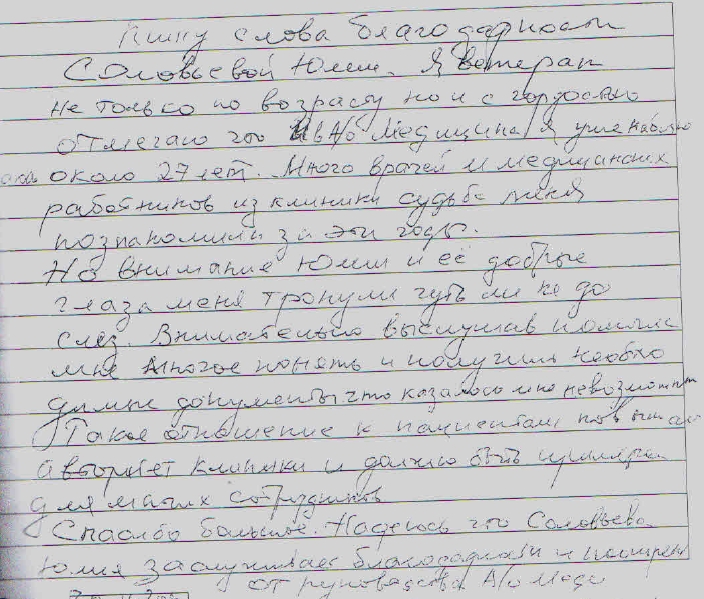 Пишу слова благодарности
Соловьевой Юлии. Я ветеран
не только по возрасту но и с гордостью
отмечаю что в А/о Медицина я уже наблю
даюсь около 27 лет. Много врачей и медицинских
работников из клиники судьба меня
познакомили за эти годы.
Но внимание Юлии и её добрые
глаза меня тронули чуть ли не до
слез. Внимательно выслушав помогла
мне многое понять и получить необхо
димые документы что казалось мне невозможным
Такое отношение к пациентам повышает
авторитет клиники и должно быть примером
для многих сотрудников
Спасибо большое. Надеюсь что Соловьева
Юлия заслуживает благодарности и поощрения
от руководства А/о Меди